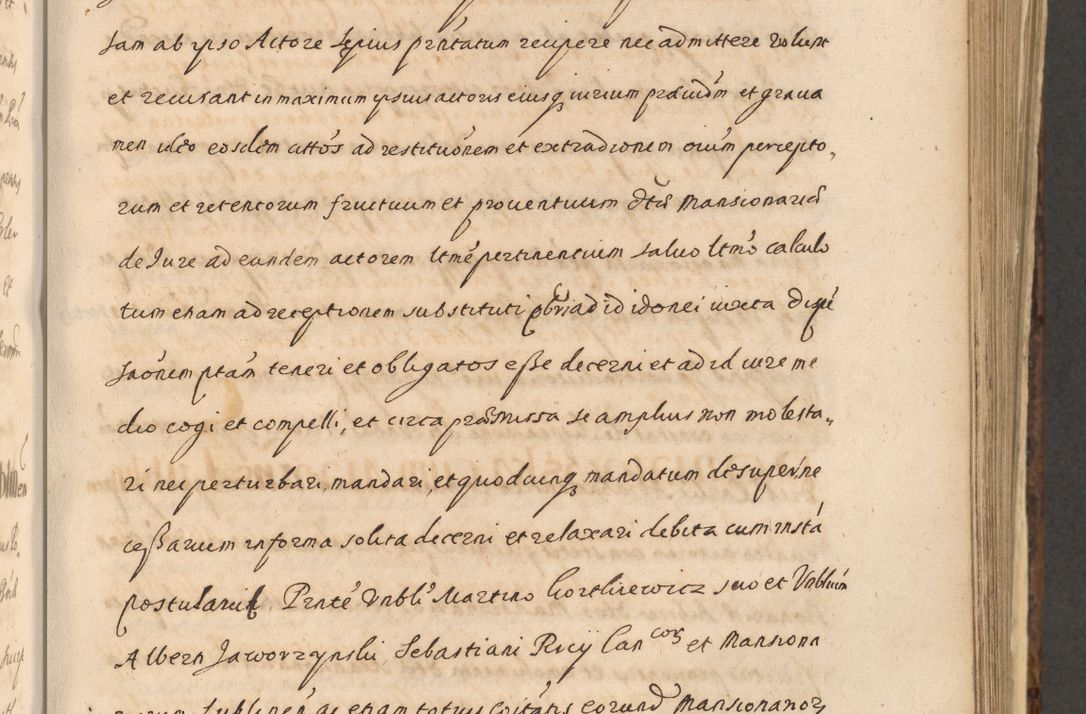 sam ab ypso Actore sępius prntatum recipere nec admittere volunt
et recusant in maximum ypsius actoris eiusq iurium praeiudm et grava
men ideo eosdem attos ad restituonem et extradionem oium percepto„
rum et retentorum fructuum et proventuum dtae Mansionariae
de Jure ad eandem actorem ltme pertinentium salvo ltmo calculo
tum etiam ad receptionem substituti pbri ad id idonei iuxta dispe
saonem ptam teneri et obligatos eſse decerni et ad id iure me
dio cogi et compelli, et circa praemissa se amplius non molesta„
ri nec perturbari, mandari, et quodcunq mandatum desuper ne
ceſsarium in forma solita decerni et relaxari debita cum insta
postulavit. Prnte Vnbli Martino Gortliewicz suo et Vnblium
Alberti Jaworzynski, Sebastiani Recij Can cor et Mansiona
Lublinen ac etiam totius Coitatis eorund Mansionarior